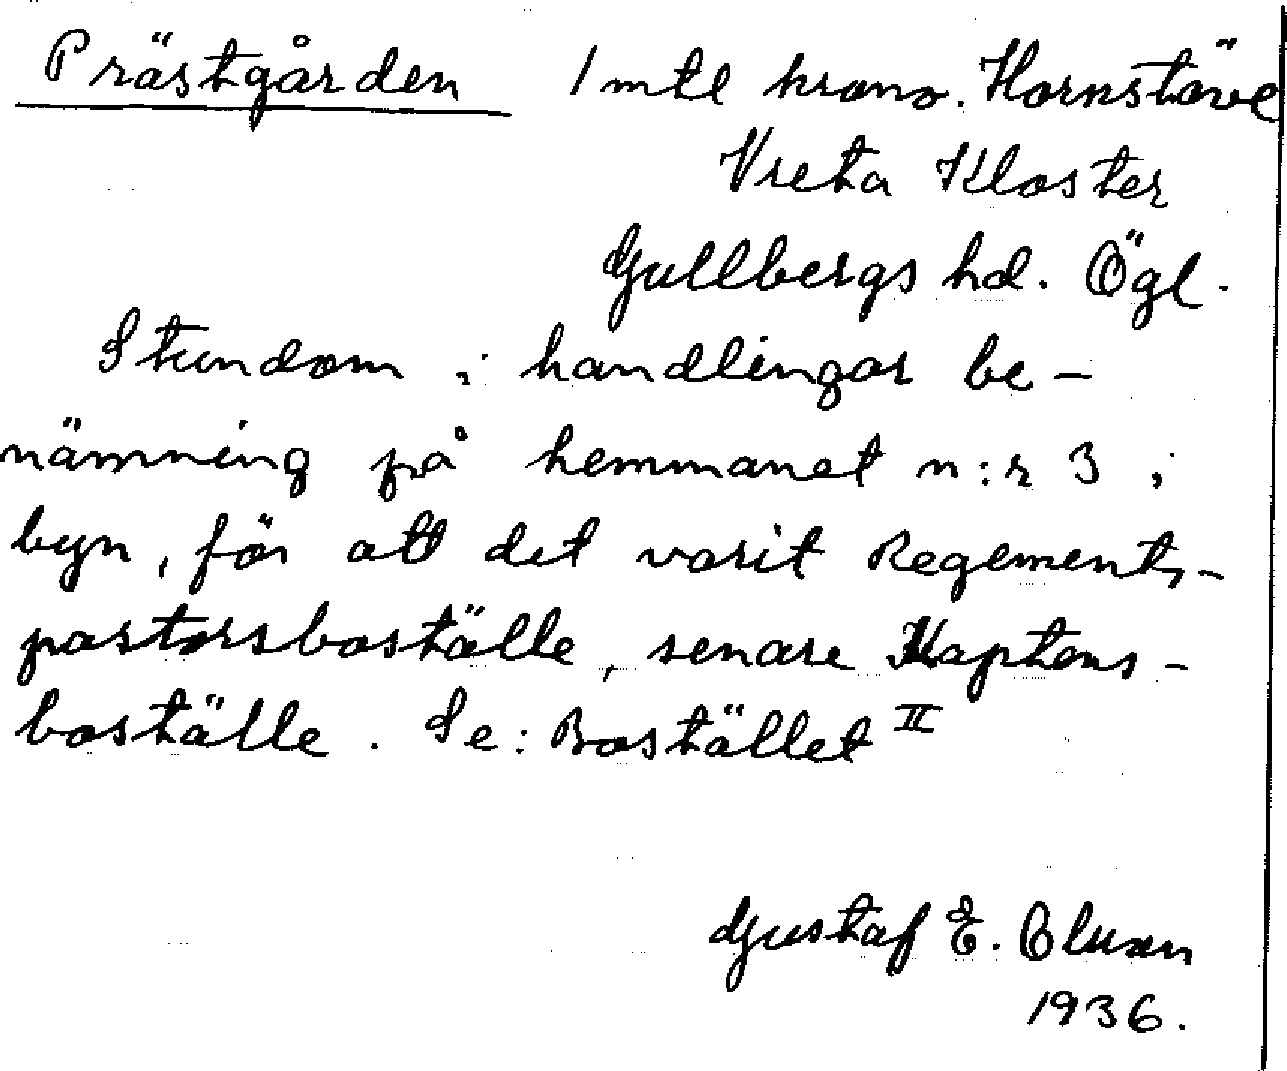 Prästgården 1 mtl krono. Hornstäve
Vreta Kloster
Gullbergs hd. Ögl.
Stundom i handlingar be-
nämning på hemmanet n:r 3 i
byn, för att det varit Regements-
pastorsboställe, senare Kaptens-
boställe. Se: Bostället II
Gustaf E.
1936.